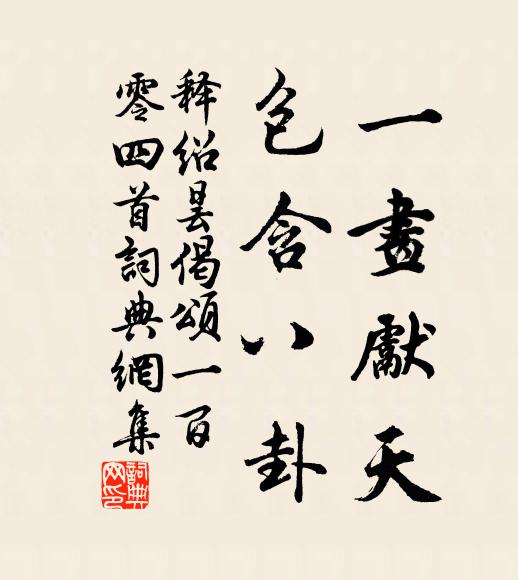 一畫獻天
包含八卦
释绍昙偈頌一百
零四首詞典網集
詞典網印